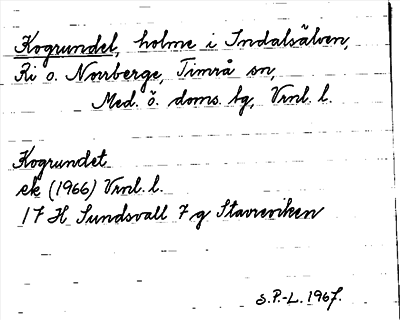 Kogrundet, holme i Indalsälven,
Ri o. Norrberge, Timrå sn,
Med. ö. doms. tg, Vnl. l.
Kogrundet
ek (1966) Vnl. l.
17 H Sundsvall 7 g Stavreviken
S.P.-L. 1967.